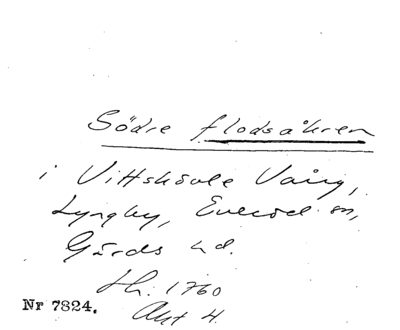 Södre flodsåkren
i Vittskövle Vång,
Lyngby, Everöd sn,
Gärds hd.
Lh. 1760
Akt 4.
Nr 7824.